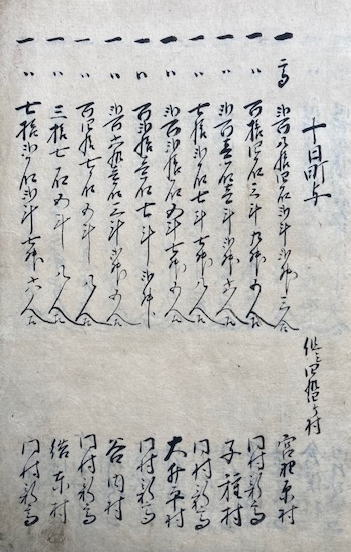 十日町与
但シ四拾ヶ村
一高弐百八拾四石弐斗弐升三合 宮野原村
一〃百拾四石三斗九升五合 同村新高
一〃弐百壱石壱斗弐升六合 子種村
一〃七拾弐石七斗弐升八合 同村新高
一〃弐百弐石五斗七升五合 大井平村
一〃百弐拾壱石七斗弐升 同村新高
一〃弐百六拾壱石三斗弐升五合 谷内村
一〃百四拾七石五斗八合 同村新高
一〃三拾七石五斗八合 結東村
一〃七拾弐石弐斗七升六合 同村新高